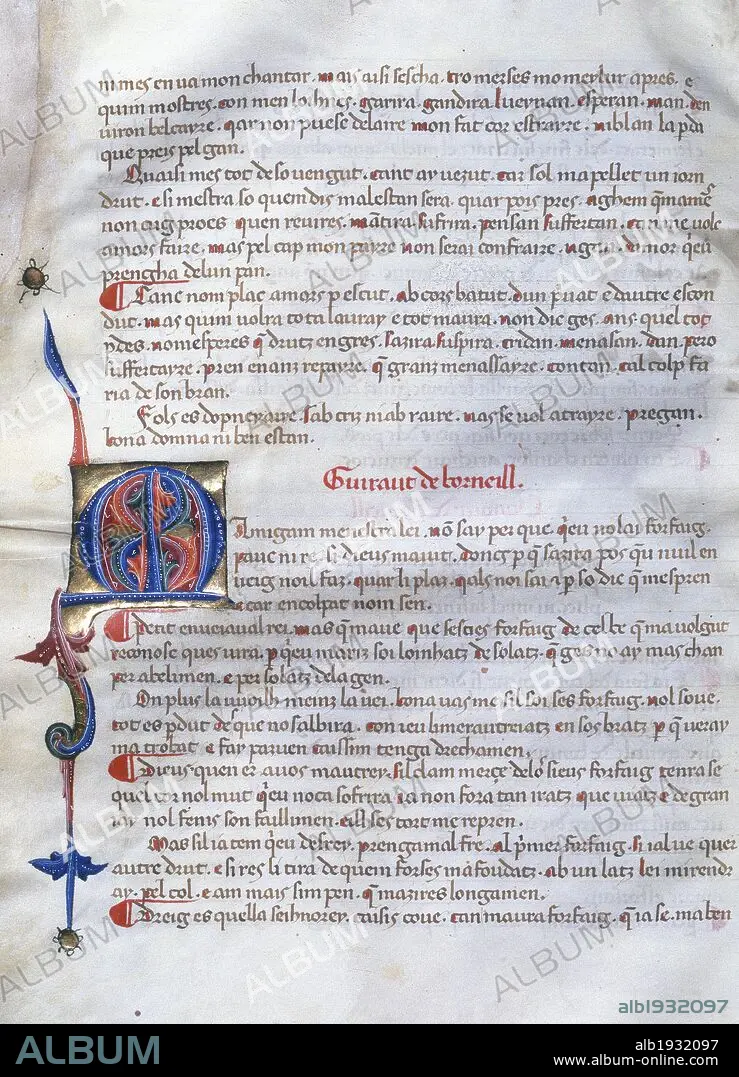 ni mes en va mon chantar. mais aisi sescha. tro merses mo meylur apres. e
quim mostres. con men loihnes. garira. gandira. lueynan. esperan. man. den
viron belcayre. qar non puese delaire mon fat cor estrayre. ni blan la pda
que preis pel gan.
Quaisi mes tot de so vengut. cant ay vezut. car sol ma pellet un iorn
drut. e si mestra so quem dis malestan sera. quar pois pres.
non cug proes quen revires. sufrira. pensan suffertan.
amors faire. mas pel cap mon payre non serai confraire. mor qeu
prengha delun pan.
Canc nom plac amors p escut. ab cors batut. dun p uat e dautre escon
dut. mas quim volra tota lauray e tot maura. non dic ges. ans. quel tot
ydes. nomesperes q drutz engres. sazira suspira. cridan. menasan. dan. pero
suffertayre. pren enanz repayre. q granz menassayre. contan. cal colp fa
ria de son bran.
Fols es dopneyaire. sab criz ni ab raire. mas se vol atrayre. pregan.
bona domna ni ben estan.
Guiraut de borneill.
Amigam menestra lei. non say per que. qeu nolai forfaig.
paue ni re. si dieus maiut. doncs p q sazira pos qu nuil en
ueig noil faz. quar li plaz. qals noi sai. p so dic q mespren
e car encolpat nom sen.
petit en uei aval rei. mas q maue. que sescies forfaig de cel be q ma volgut
reconose ques vira. p qeu mariz soi loinhatz de solatz. q ges no ay mas chan
per abelimen. e per solatz dela gen.
On plus la vuoilh meinz la vei. bona vas me sil soi ses forfaig. nol soue.
tot es pdut de que no salbira. con ieu limerautreiatz en sos bratz p q veray
ma trobat. e fay paruen caissim tenga drechamen.
Dieus quen er avos mautrey. sil clam merçe delo sieus forfaig tenra se
que cor nol mut qeu noca sofrira. ia non fora tan iratz. que viatz e degran
iay nol fenis son faillimen. eill ses tort me repren.
Mas sil iatem qeu delrey. prengamal fre. al pmer forfaig. si ia lue quer
autre drut. e si res li tira de quem forses ma foudatz. ab un latz lei mirendr
ay. pel col. e am mais sim pen. q mazires longamen.
Dreig es quella seihnorey. caisis coue. can maura forfaig. q ia se. ma ben
ALBUM
alb1932097
ALBUM
alb1932097
www.album-online.com